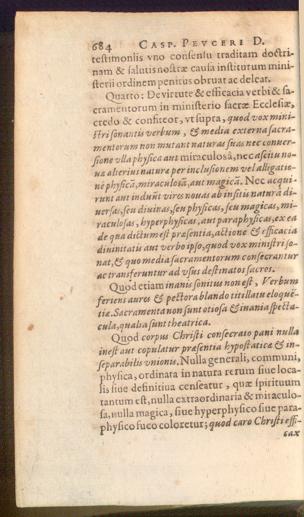 684 CASP. PEVCERI D.
testimoniis vno consensu traditam doctri-
nam & salutis nostræ causa institutum mini-
sterii ordinem penitus obruat ac deleat.
Quarto: De virtute & efficacia verbi & sa-
cramentorum in ministerio sacræ Ecclesiæ,
credo & confiteor, vt supra, quod vox mini-
stri sonantis verbum, & media externa sacra-
mentorum non mutant naturas suas nec conuer-
sione vlla physica aut miraculosâ, nec ascitu no-
uæ alterius naturæ per inclusionem vel alligatio-
nē physicâ, miraculosâ, aut magicâ. Nec acqui-
runt aut induūt vires nouas ab insitis naturâ di-
uersas, seu diuinas, seu physicas, seu magicas, mi-
raculosas, hyperphysicas, aut paraphysicas, ex ea
de qua dictum est præsentia, actione & efficacia
diuinitatis aut verbo ipso, quod vox ministri so-
nat, & quo media sacramentorum consecrantur
ac transferuntur ad vsus destinatos sacros.
Quod etiam inanis sonitus non est, Verbum
feriens aures & pectora blando titillatu eloquē-
tiæ. Sacramenta non sunt otiosa & inania specta-
cula, qualia sunt theatrica.
Quod corpus Christi consecrato pani nulla
inest aut copulatur præsentia hypostatica & in-
separabilis vnionis. Nulla generali, communi,
physica, ordinata in natura rerum siue loca-
lis siue definitiua censeatur, quæ spirituum
tantum est, nulla extraordinaria & miraculo-
sa, nulla magica, siue hyperphysico siue para-
physico fuco coloretur; quod caro Christi effi-
cax